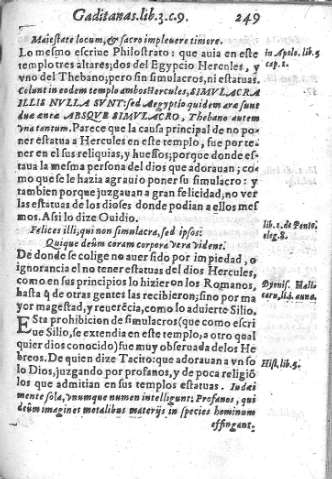 Gaditanas.lib.3.c.9. 249
Maiestate locum, & sacro impleuere timore.
Lo mesmo escriue Philostrato: que auia en este
templo tres altares; dos del Egypcio Hercules, y
vno del Thebano; pero sin simulacros, ni estatuas.
Colunt in eodem templo ambos Hercules, SIMVLACRA
ILLIS NVLLA SVNT: sed Aegyptio quidem aræ sunt
duæ æneæ ABSQVE SIMVLACRO, Thebano autem
vna tantum. Parece que la causa principal de no po-
ner estatua a Hercules en este templo, fue por te-
ner en el sus reliquias, y huessos; porque donde es-
taua la mesma persona del dios que adorauan; co-
mo que se le hazia agrauio poner su simulacro: y
tambien porque juzgauan a gran felicidad, no ver
las estatuas de los dioses donde podian a ellos mes-
mos. Assi lo dize Ouidio.
Felices illi, qui non simulacra, sed ipsos:
Quique deûm coram corpora vera vident.
De donde se colige no auer sido por impiedad, o
ignorancia el no tener estatuas del dios Hercules,
como en sus principios lo hizieron los Romanos,
hasta q̃ de otras gentes las recibieron; sino por ma
yor magestad, y reuerẽcia, como lo aduierte Silio.
Esta prohibicion de simulacros (que como escri
ue Silio, se extendia en este templo, a otro qual
quier dios conocido) fue muy obseruada de los He
breos. De quien dize Tacito: que adorauan a vn so
lo Dios, juzgando por profanos, y de poca religiõ
los que admitian en sus templos estatuas. Iudæi
mente sola, vnumque numen intelligunt: Profanos, qui
deûm imagines mortalibus materijs in species hominum
effingant.
in Apolo. lib. 5
cap. 1.
lib. 2. de Ponto.
eleg. 8.
Hist. lib. 5.